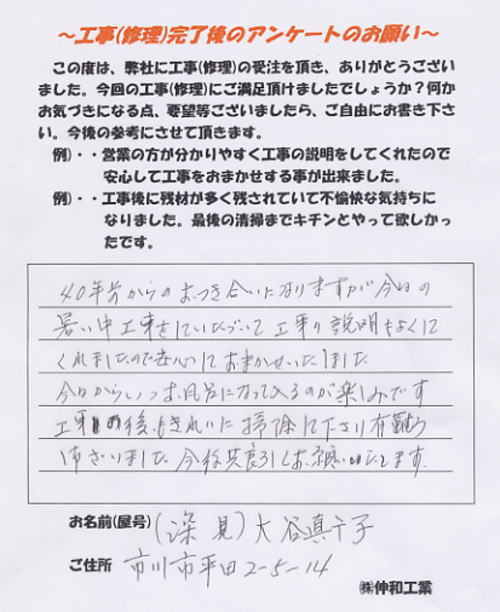 ~工事(修理)完了後のアンケートのお願い~
この度は、弊社に工事(修理)の受注を頂き、ありがとうござい
ました。今回の工事(修理)にご満足頂けましたでしょうか?何か
お気づきになる点、要望等ございましたら、ご自由にお書き下さ
い。今後の参考にさせて頂きます。
例)・・営業の方が分かりやすく工事の説明をしてくれたので
安心して工事をおまかせする事が出来ました。
例)・・工事後に残材が多く残されていて不愉快な気持ちに
なりました。最後の清掃までキチンとやって欲しかっ
たです。
40年前からのおつき合いになりますが今回の
暑い中工事をしていただいて工事の説明もよくして
くれましたので安心しておまかせいたしました
今日から お風呂になって入るのが楽しみです
工事の後もきれいに掃除して下さり有難う
ございました 今後共良ろしくお願いいたします。
お名前(屋号) (深見) 大谷真千子
ご住所 市川市平田2-5-14
㈱伸和工業